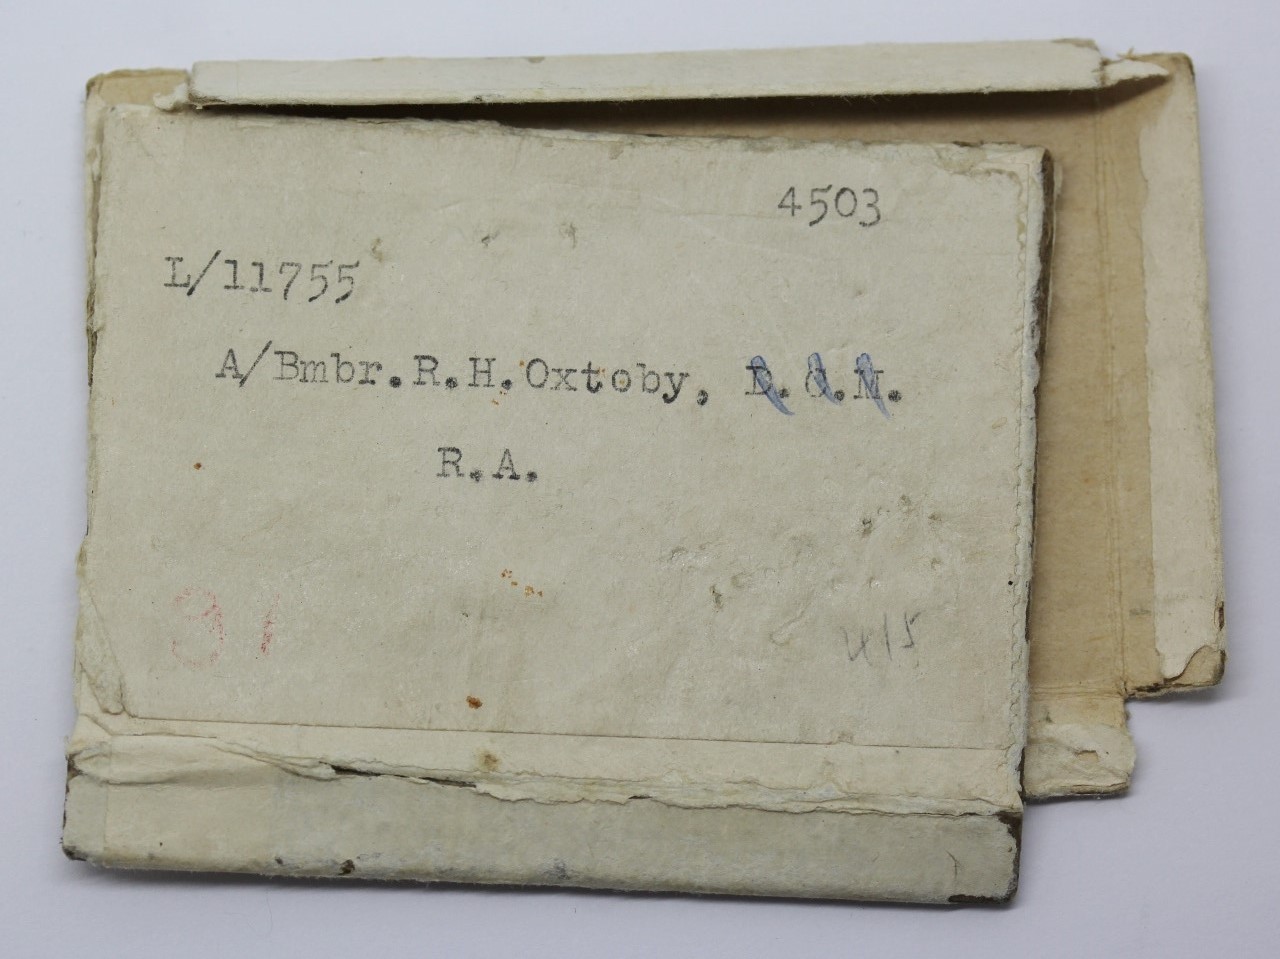 4503
L/11755
A/Bmbr.R.H.Oxtoby, D.C.M.
R.A.
31
415